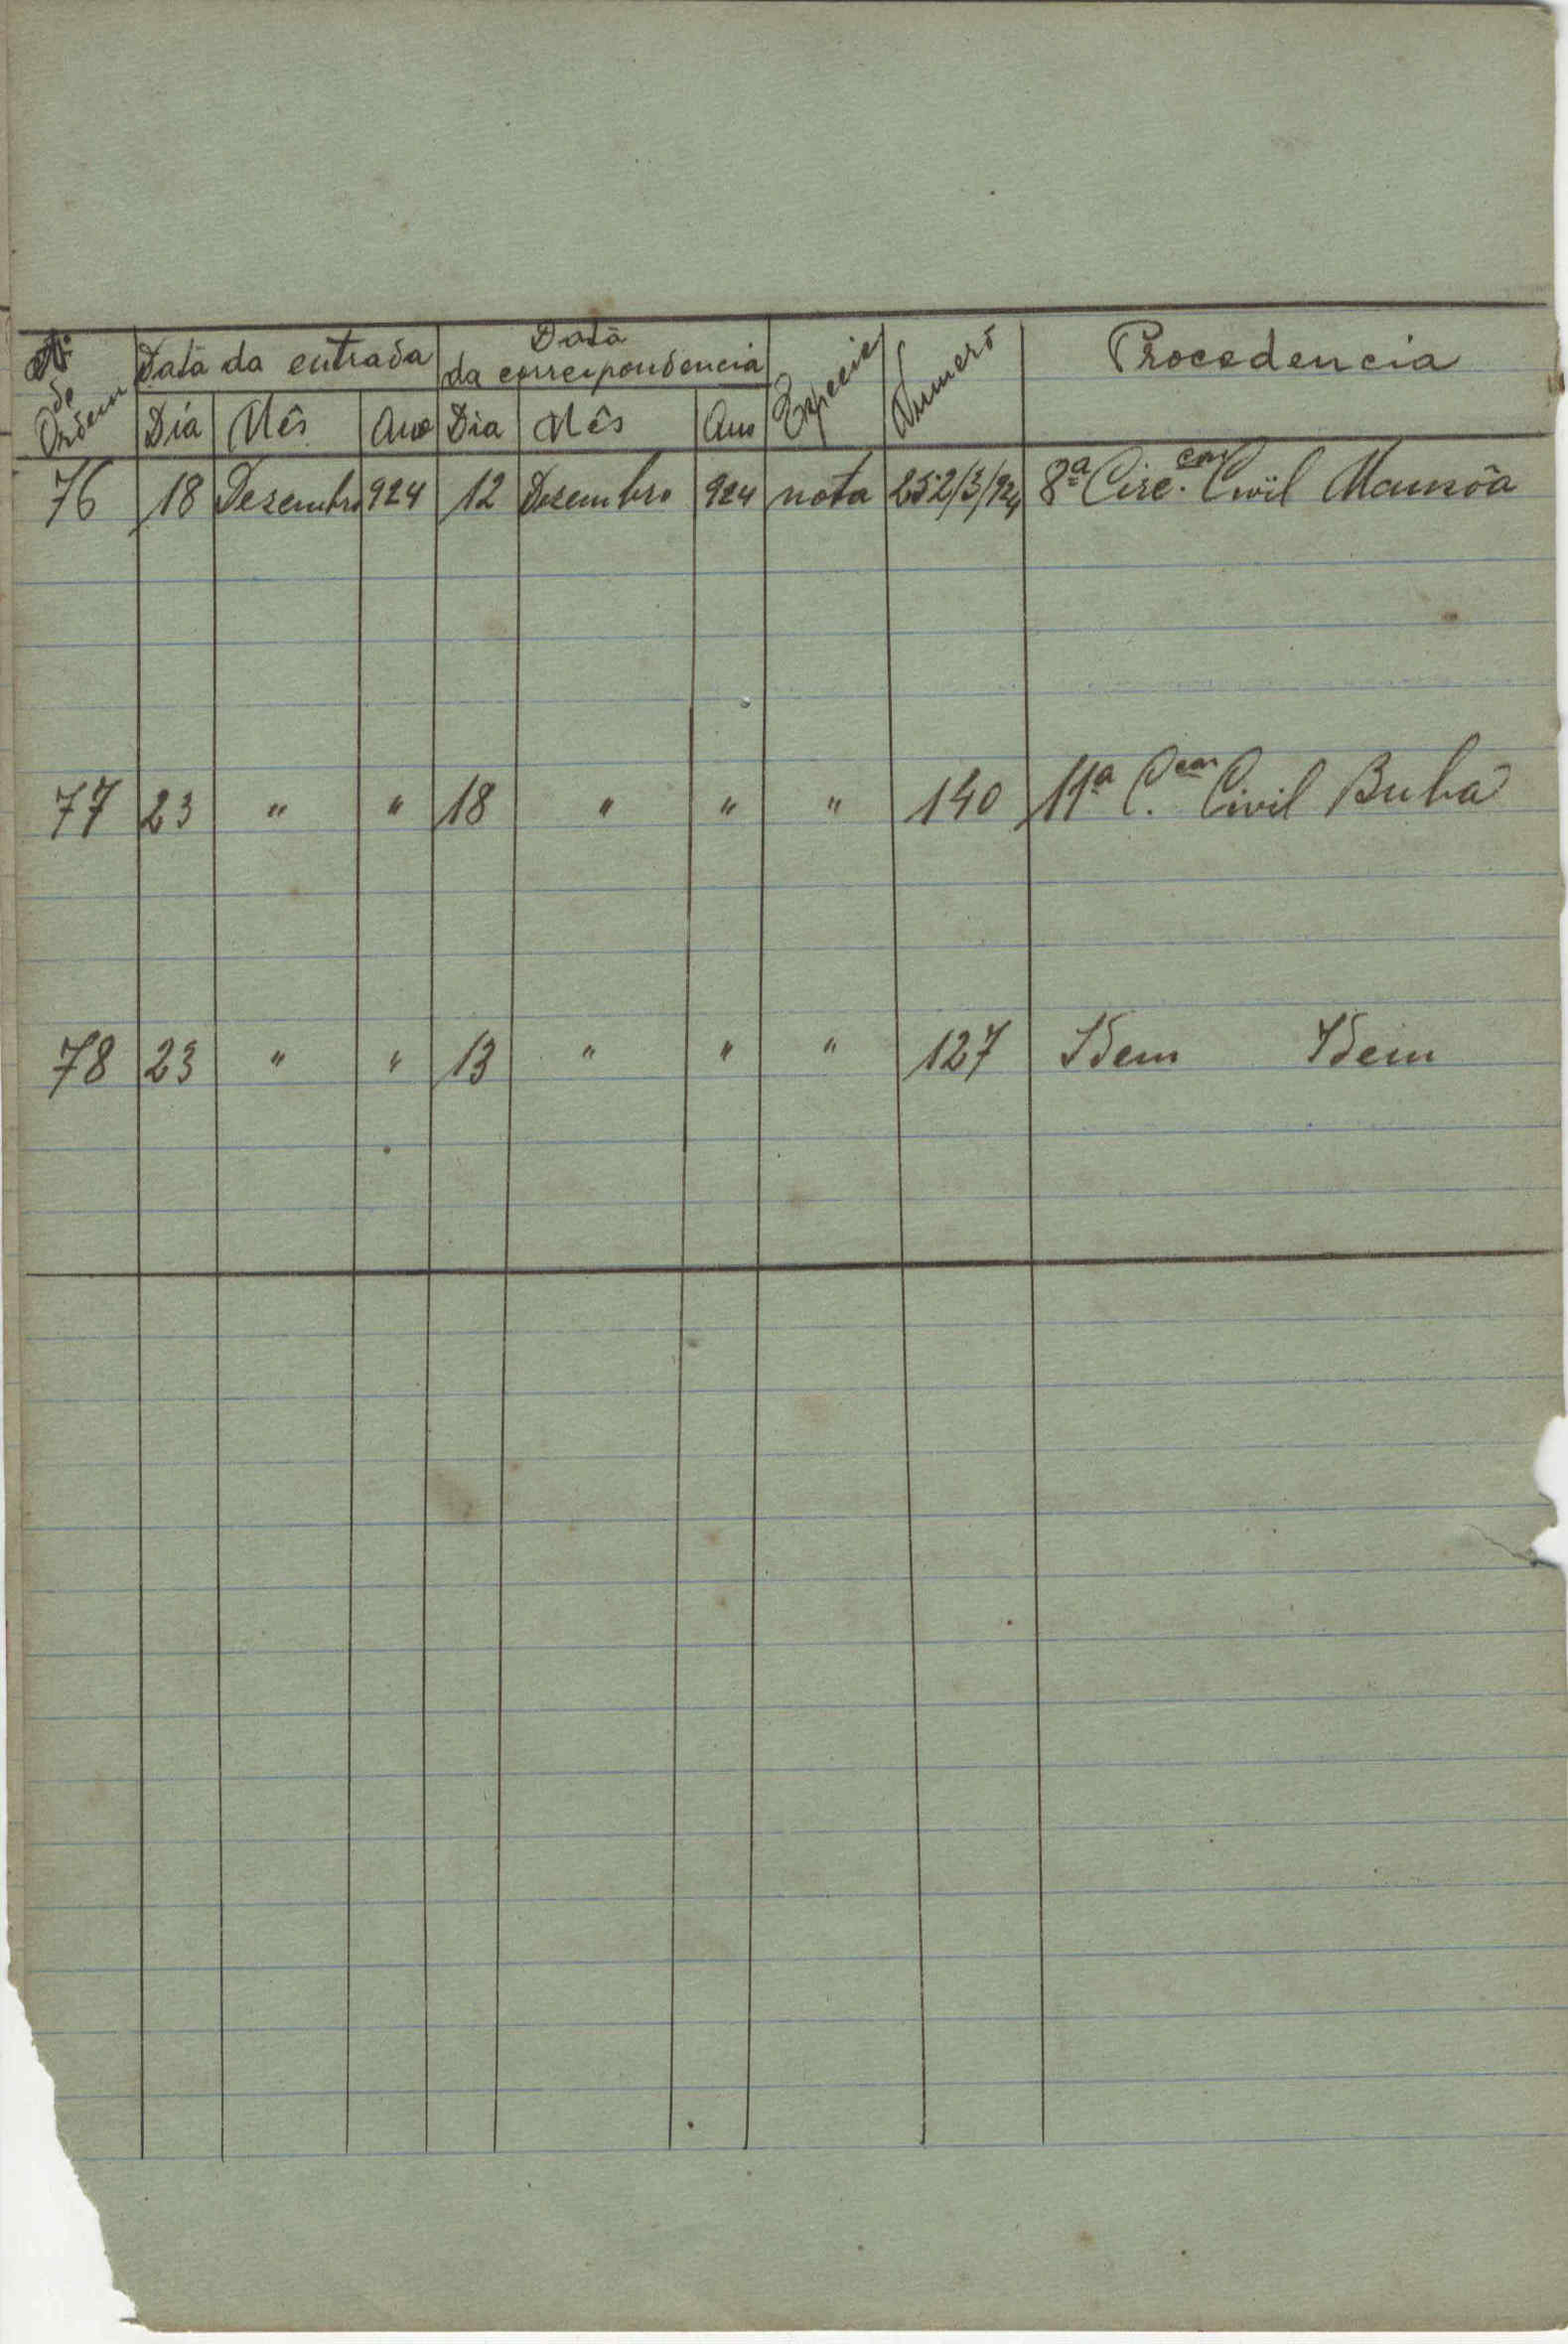 Nº de Ordem | Data da entrada | Data da correspondencia | Especie | Numero | Procedencia
Dia | Mês | Ano | Dia | Mês | Ano
76 | 18 | Dezembro | 924 | 12 | Dezembro | 924 | nota | 252/3/924 | 8ª Circ.cm Civil Mansôa
77 | 23 | " | " | 18 | " | " | " | 140 | 11ª C.cm Civil Buba
78 | 23 | " | " | 13 | " | " | " | 127 | Idem Idem